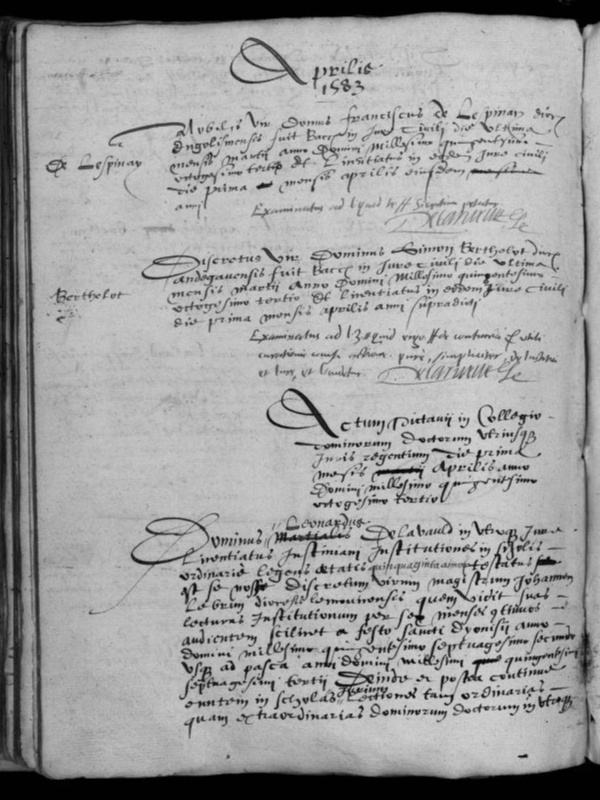 Aprilis
1583
Nobilis vir Domnus franciscus de Lespinay dioc
De Lespinay
Engolismensis fuit Bacc in Jure Civili die ultima
mensis Martii anno Domini Millesimo quingentesimo
octogesimo tertio dt Licentiatus in eodem Jure civili
die prima mensis aprilis eiusdem
anni
Examinatus ad l quid
Discretus Vir Dominus Simon Berthelot
andegavensis fuit Bacc in Jure Civili die ultima
Berthelot
mensis Martii Anno Domini Millesimo quingentesimo
octogesimo tertio dt licentiatus in eodem Jure Civili
die prima mensis aprilis anni supradicti
Examinatus ad l quid ergo
pure, simpliciter
Actum Pictavii in Collegio
dominorum doctorum utriusq
Juris regentium die prima
mensis Aprilis anno
Domini millesimo quingentesimo
octogesimo tertio
Leonardus
Dominus Martialis Delavauld in utroq Jure
licentiatus Justiniani Institutiones in scholis
ordinarie legens etatis quinquaginta testatus
est se nosse discretum virum magistrum Johannem
Lebrun diocesis lemovicensis quem vidit suas
lecturas Institutionum per sex menses
audientem scilicet a festo sancti Dyonisii anno
domini millesimo quingentesimo septuagesimo secundo
usq ad pasca anni domini millesimi quingentesimi
septuagesimi tertii Deinde et postea continue
euntem in scholas lectiones tam ordinarias
quam extraordinarias dominorum doctorum in utroq